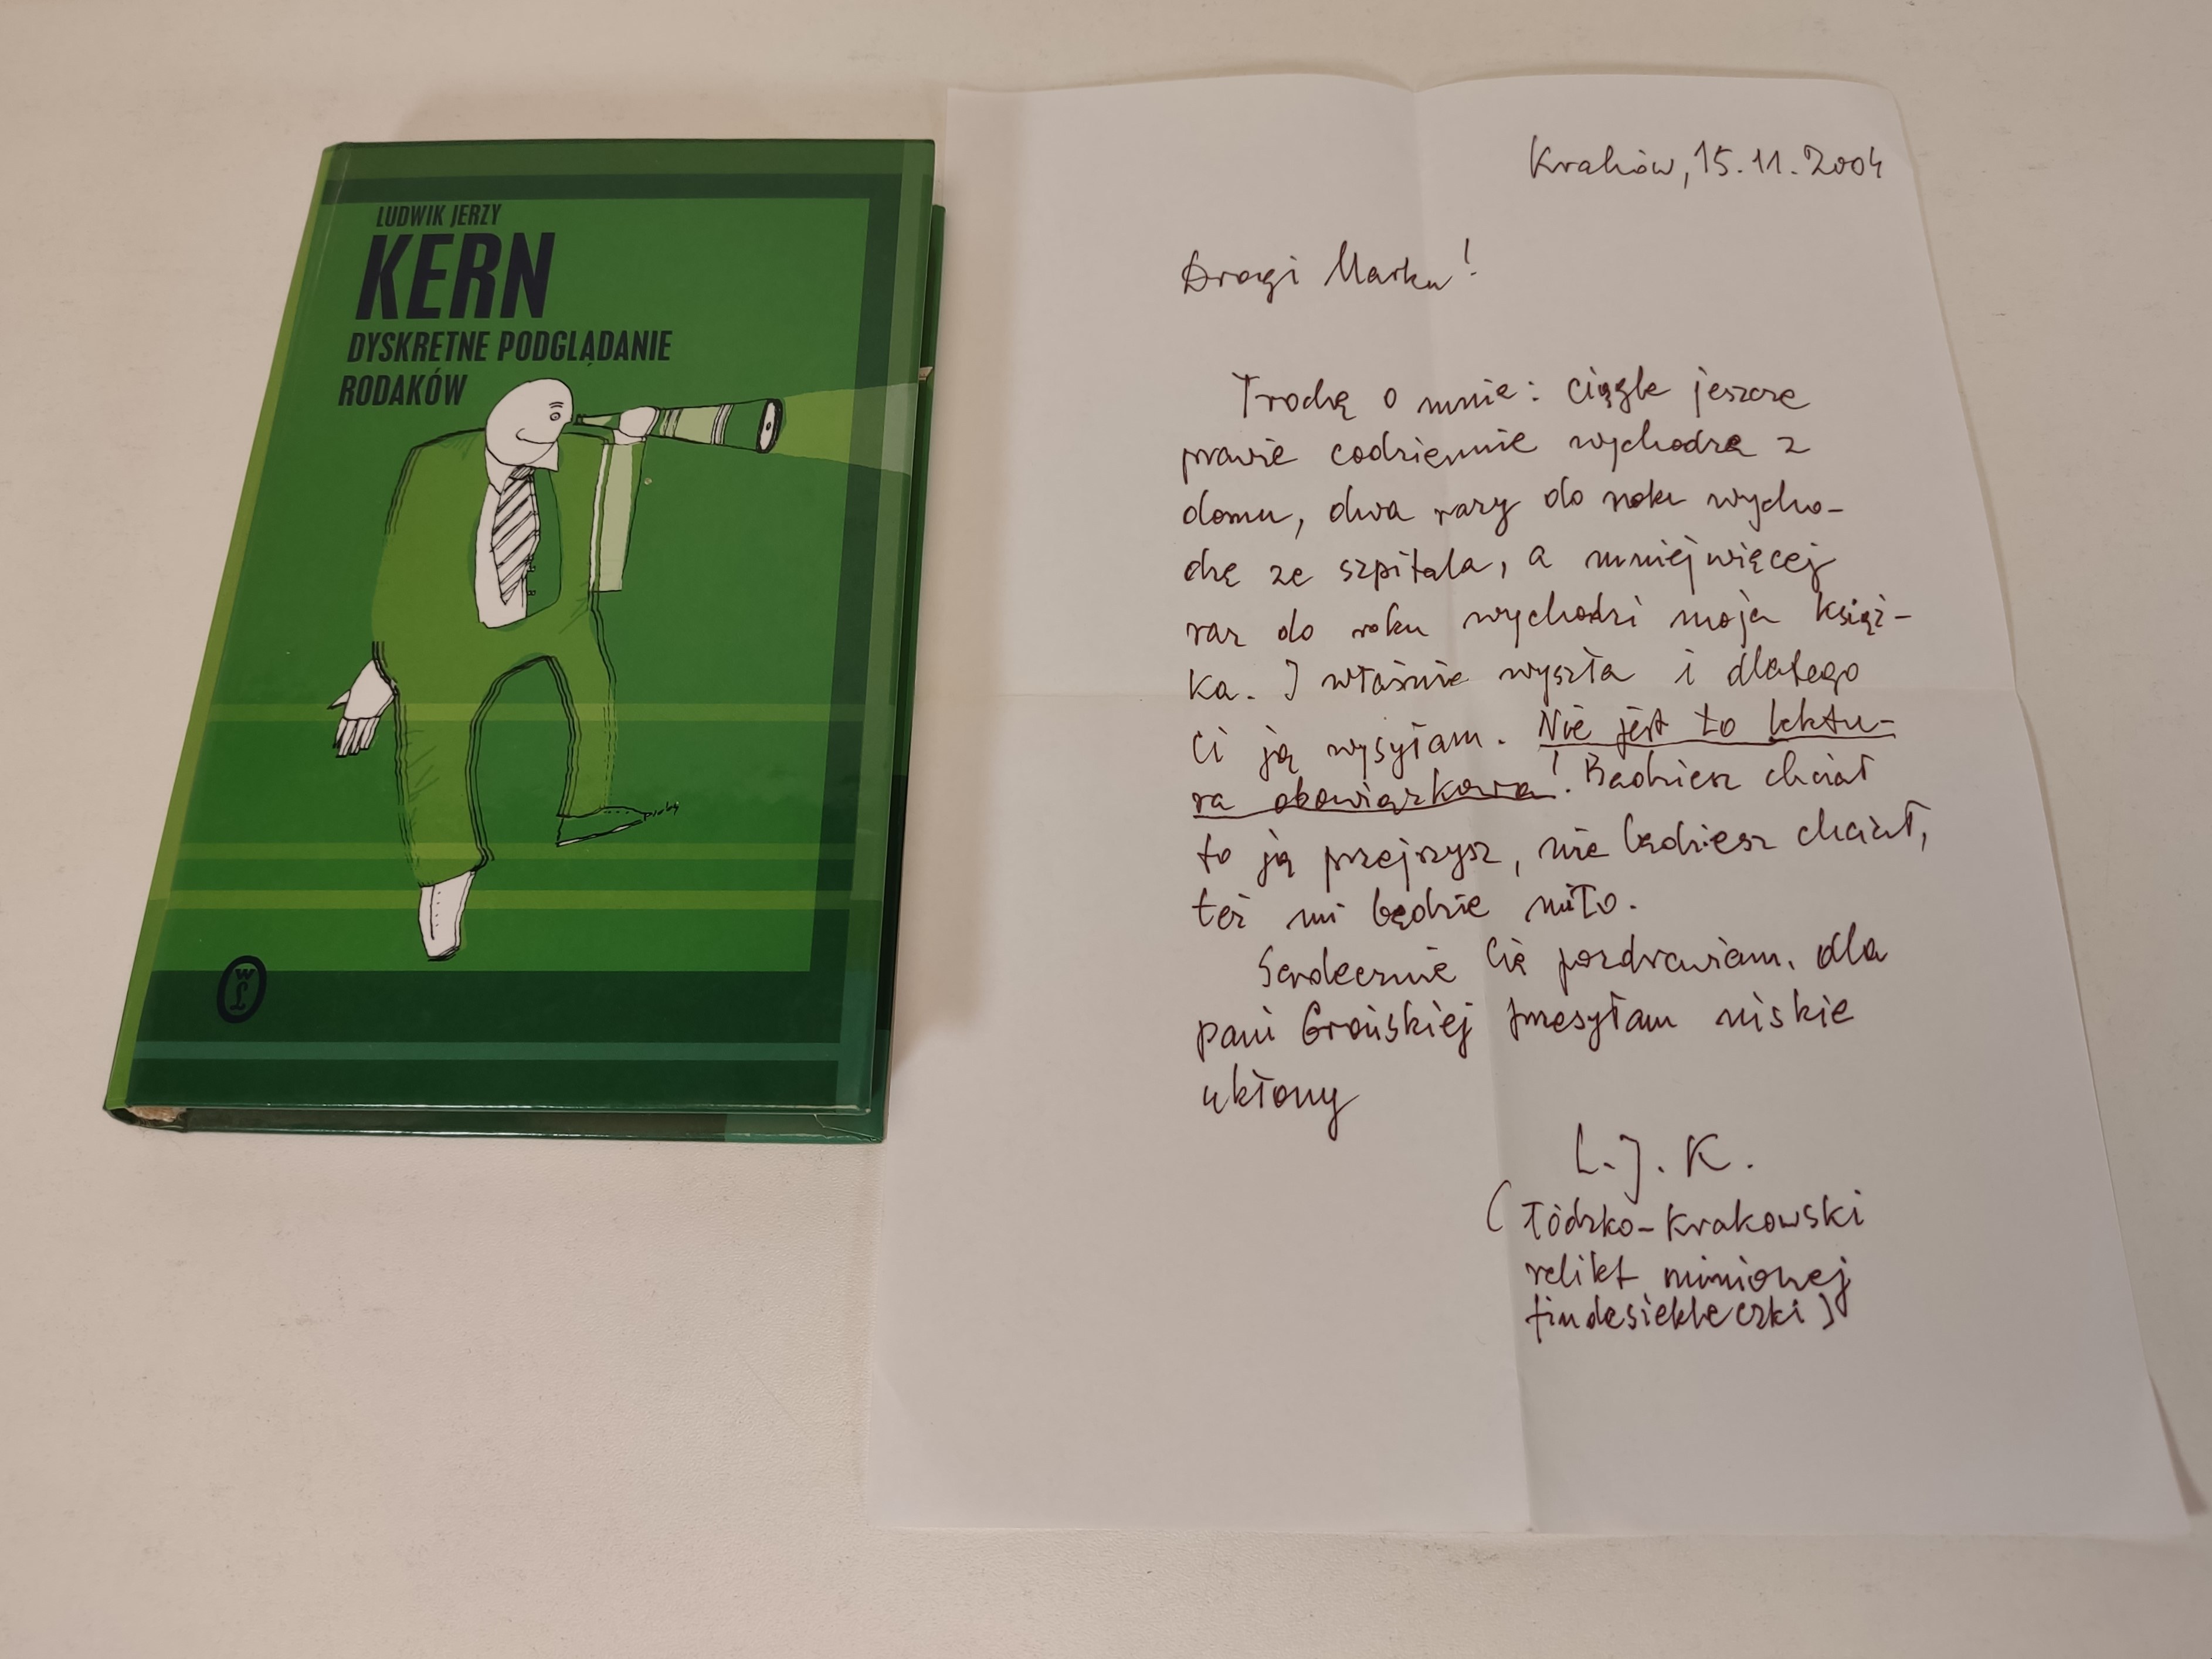 LUDWIK JERZY
KERN
DYSKRETNE PODGLĄDANIE
RODAKÓW
Kraków, 15.11.2004
Drogi Marku!
Trochę o mnie: ciągle jeszcze
prawie codziennie wychodzę z
domu, dwa razy do roku wycho-
dzę ze szpitala, a mniej więcej
raz do roku wychodzi moja książ-
ka. I właśnie wyszła i dlatego
Ci ją wysyłam. Nie jest to lektu-
ra obowiązkowa! Będziesz chciał
to ją przejrzysz, nie będziesz chciał,
też mi będzie miło.
Serdecznie Cię pozdrawiam, dla
pani Grońskiej przesyłam niskie
ukłony
L.J.K.
(Łódzko-Krakowski
relikt minionej
findesiekleczki)